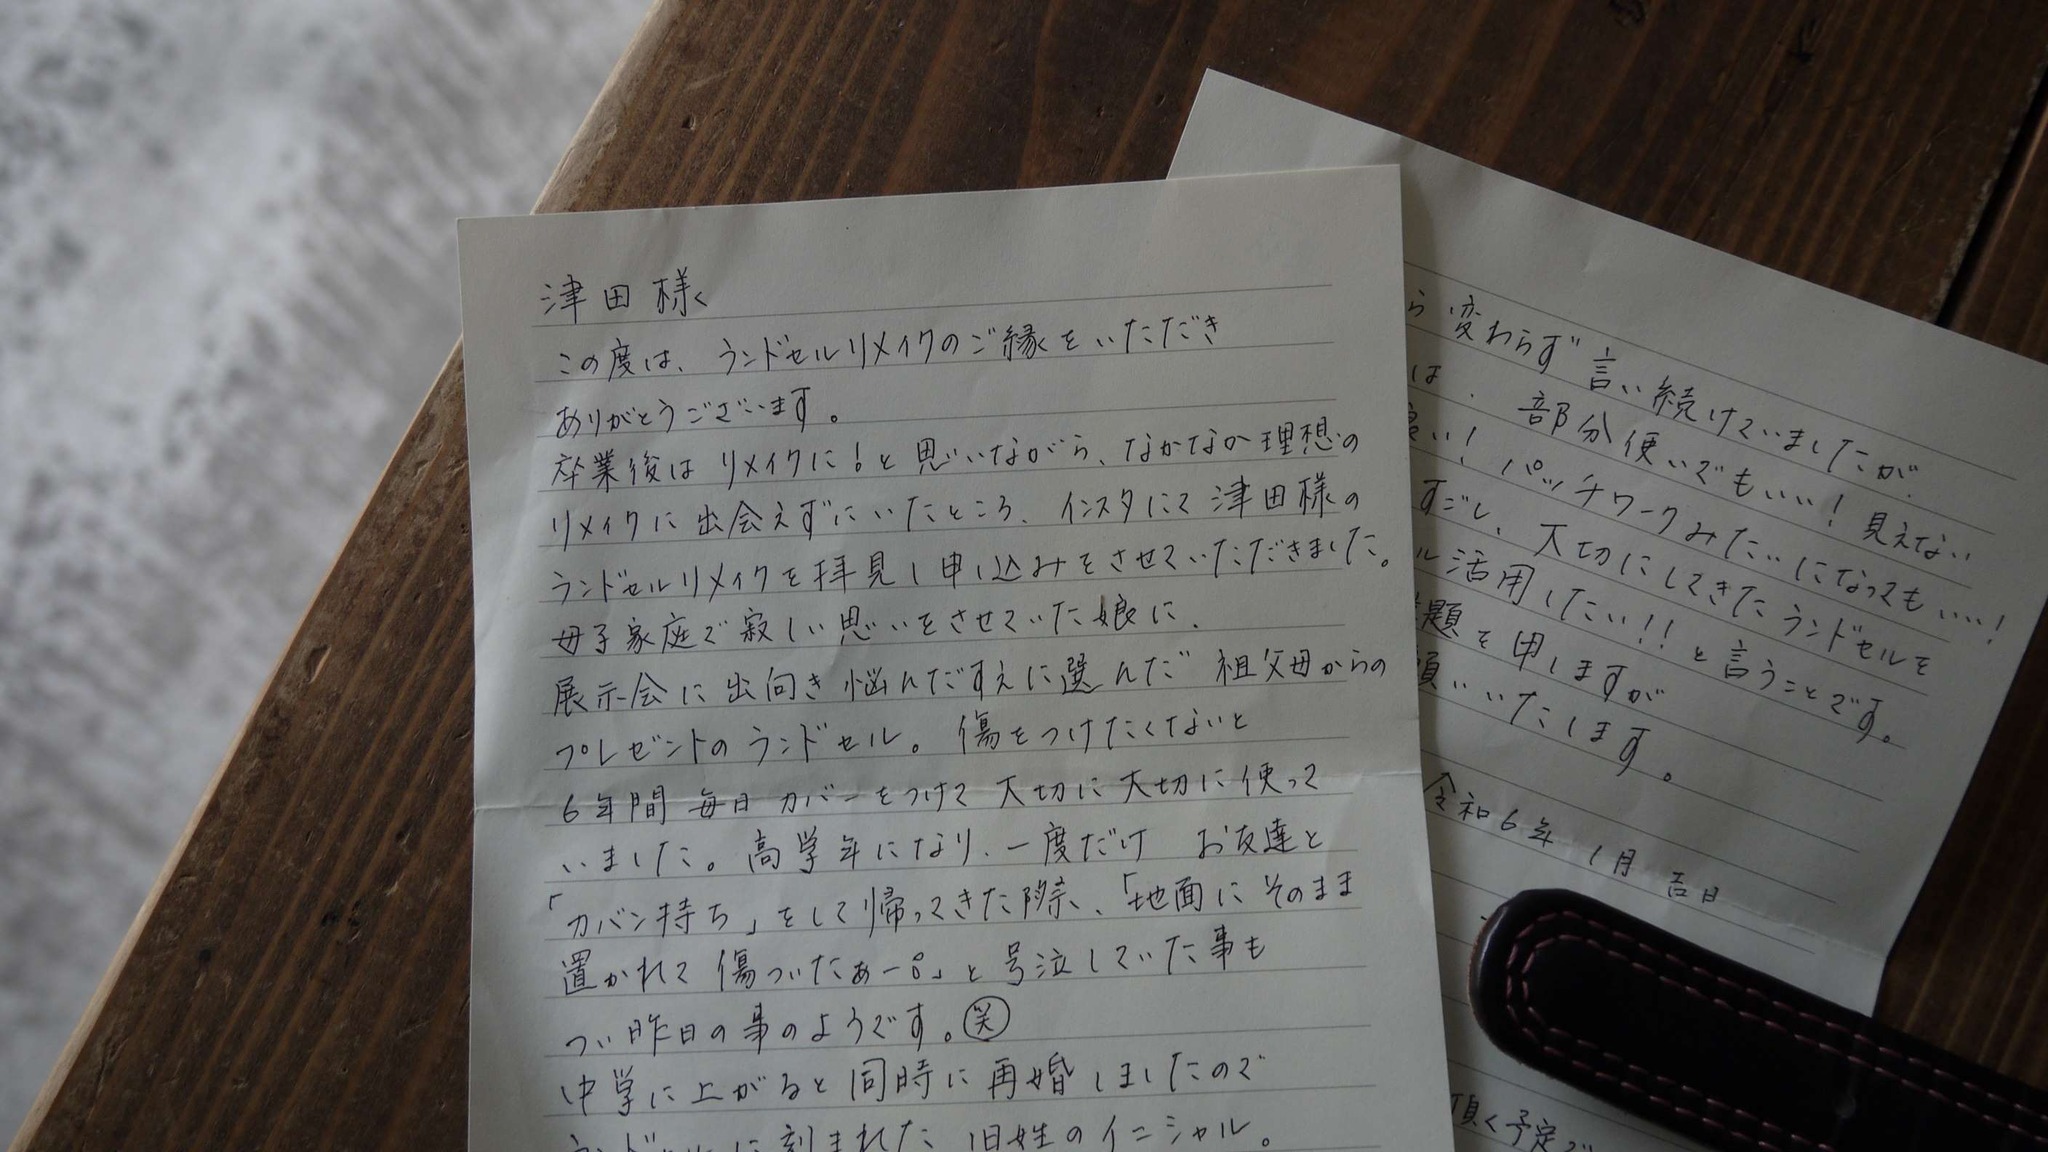 津田様
この度は、ランドセルリメイクのご縁をいただき
ありがとうございます。
卒業後はリメイクに！と思いながら、なかなか理想の
リメイクに出会えずにいたところ、インスタにて津田様の
ランドセルリメイクを拝見し申し込みをさせていただきました。
母子家庭で寂しい思いをさせていた娘に、
展示会に出向き悩んだすえに選んだ祖父母からの
プレゼントのランドセル。傷をつけたくないと
6年間毎日カバーをつけて大切に大切に使って
いました。高学年になり、一度だけ お友達と
「カバン持ち」をして帰ってきた際、「地面にそのまま
置かれて傷ついたぁー。」と号泣していた事も
つい昨日の事のようです。笑
中学に上がると同時に再婚しましたので
ランドセルに刻まれた旧姓のイニシャル。
ら変わらず言い続けていましたが、
は、部分使いでもいい！見えない
い！パッチワークみたいになってもいい！
すごし、大切にしてきたランドセルを
ル活用したい！！と言うことです。
題を申しますが
願いいたします。
令和6年 1月 吉日
頂く予定で